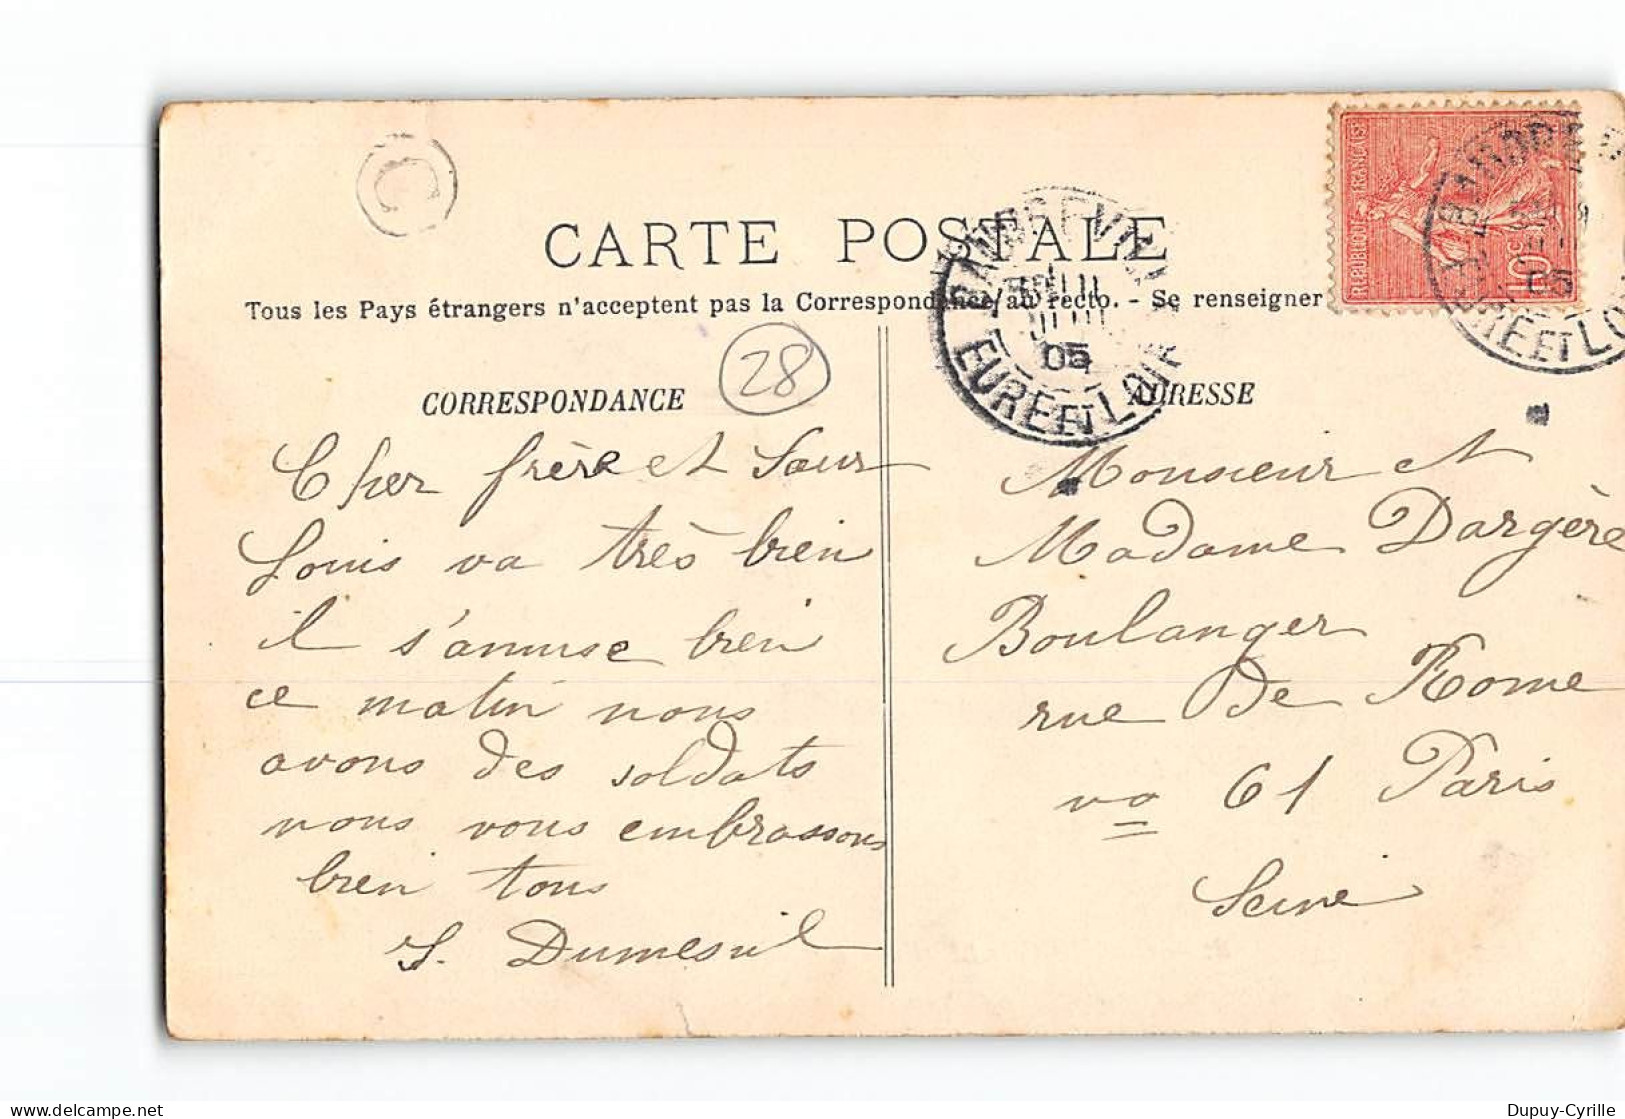 C
CARTE POSTALE
Tous les Pays étrangers n'acceptent pas la Correspondance au recto. - Se renseigner
REPUBLIQUE FRANÇAISE
10c
05
EURE ET LOIR
05
EURE ET LOIR
28
CORRESPONDANCE
Cher frère et Sœur
Louis va très bien
il s'amuse bien
ce matin nous
avons des soldats
nous vous embrassons
bien tous
S. Dumesnil
ADRESSE
Monsieur et
Madame Dargère
Boulanger
rue De Rome
no 61 Paris
Seine
Dupuy-Cyrille